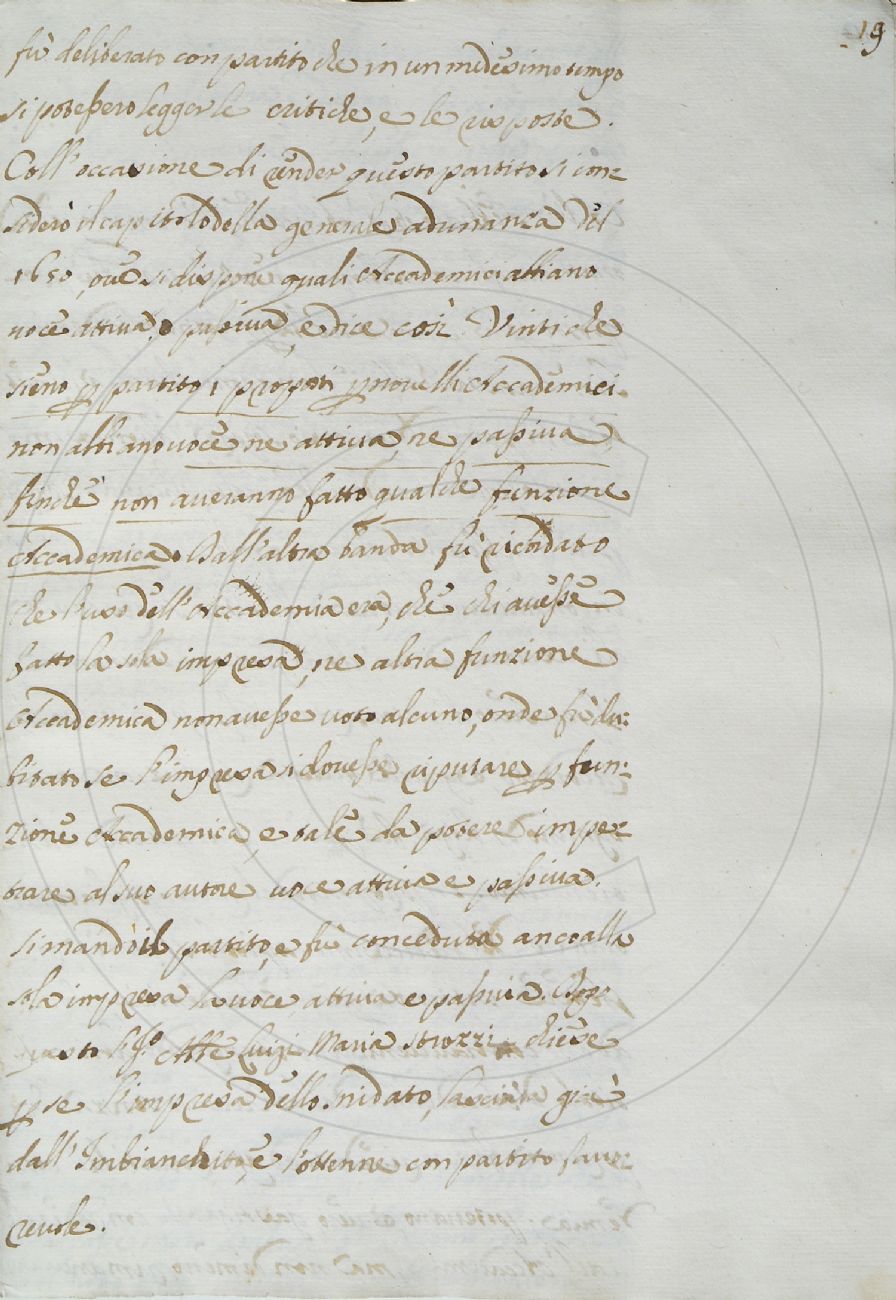 19
fù deliberato con partito che in un medesimo tempo
si potessero legger le critiche, e le risposte.
Coll'occasione di render questo partito si con=
siderò il capitolo della generale adunanza del
1650, ove si dispone quali Accademici abbiano
voce attiva, o passiva, e dice così Vinti che
sieno p partito i proposti p novelli Accademici.
non abbiano voce ne attiva, ne passiva
finche non averanno fatto qualche funzione
Accademica. Dall'altra banda fù ricordato
che l'uso dell'Accademia era, che chi avesse
fatto la sola impresa, ne altra funzione
Accademica non avesse voto alcuno, onde fù du=
bitato se l'impresa si dovesse riputare p fun=
zione Accademica, e tale da potere impe=
trare al suo autore voce attiva e passiva.
Si mandò il partito, e fù conceduta anco alla
sola impresa la voce attiva e passiva. Dopo
questo il Sig.r Abb.e Luigi Maria Strozzi chiese
p se l'impresa dello Snidato, lasciata già
dall'Imbianchito, e l'ottenne con partito favo=
revole.